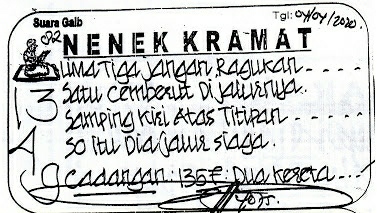 Suara Gaib
Tgl: 04/04/2020.
NENEK KRAMAT
LIMA TIGA JANGAN RAGUKAN
SATU CEMBERUT DIJALURNYA.
SAMPING KIRI ATAS TITIPAN
SO ITU DIA JALUR SIAGA.
CADANGAN: 1357: DUA KERETA